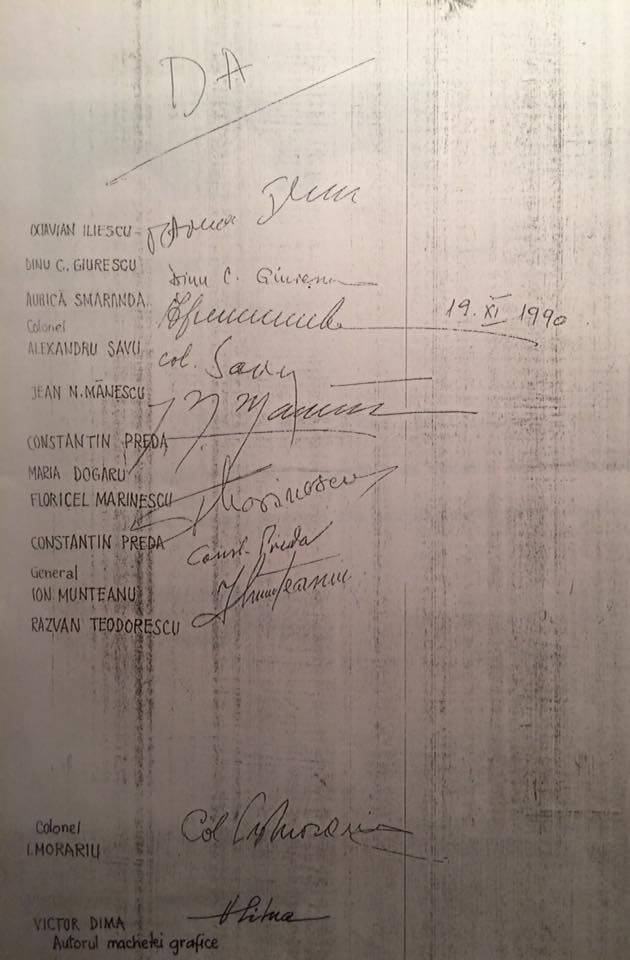 DA
OCTAVIAN ILIESCU -
DINU C. GIURESCU Dinu C. Giurescu
AURICĂ SMARANDA 19. XI 1990
Colonel
ALEXANDRU SAVU col. Savu
JEAN N. MĂNESCU
CONSTANTIN PREDA
MARIA DOGARU
FLORICEL MARINESCU Marinescu
CONSTANTIN PREDA Const. Preda
General
ION MUNTEANU Munteanu
RAZVAN TEODORESCU
Colonel
I. MORARIU Col Morariu
VICTOR DIMA
Autorul machetei grafice